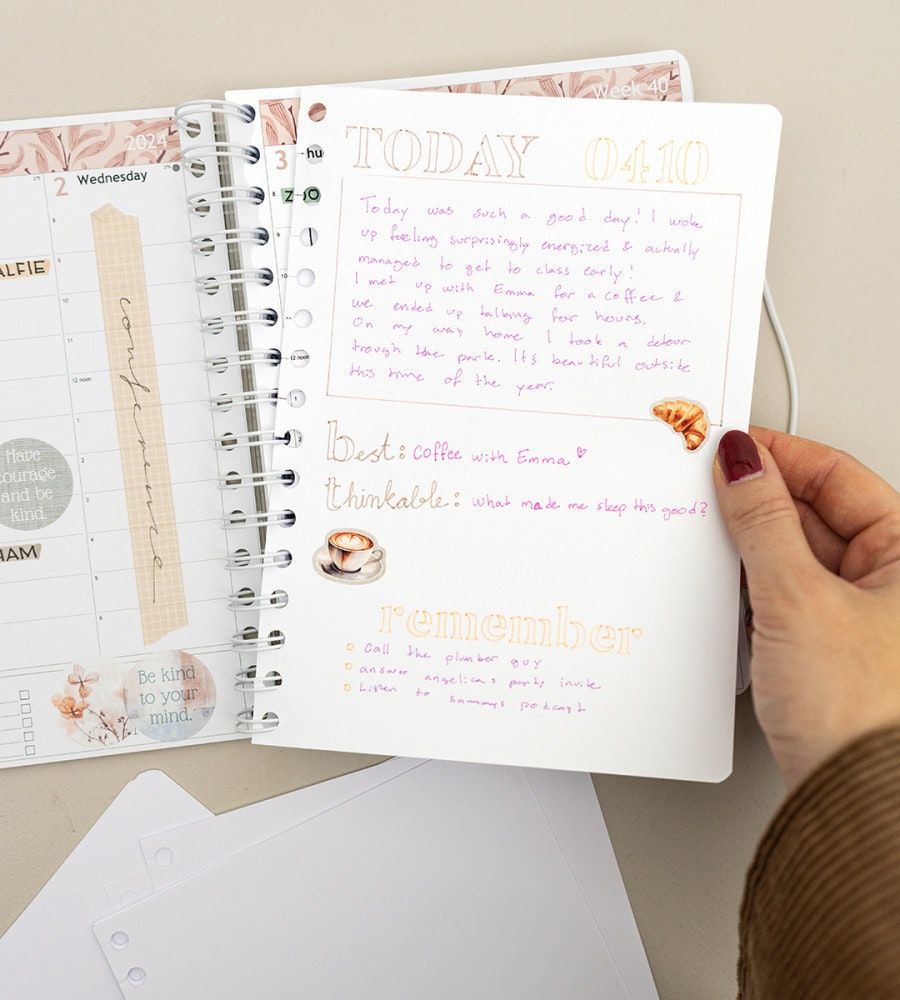 2024
2 Wednesday
ALFIE
conference
Have
courage
and be
kind.
HAM
Be kind
to your
mind.
Week 40
3
hu
8
9
10
12 noon
1
2
3
4
5
TODAY 0410
Today was such a good day! I woke
up feeling surprisingly energized & actually
managed to get to class early!
I met up with Emma for a coffee &
we ended up talking for hours.
On my way home I took a detour
trough the park. It's beautiful outside
this time of the year.
best: Coffee with Emma ♡
thinkable: what made me sleep this good?
remember
Call the plumber guy
answer angelica's party invite
Listen to
sammys podcast